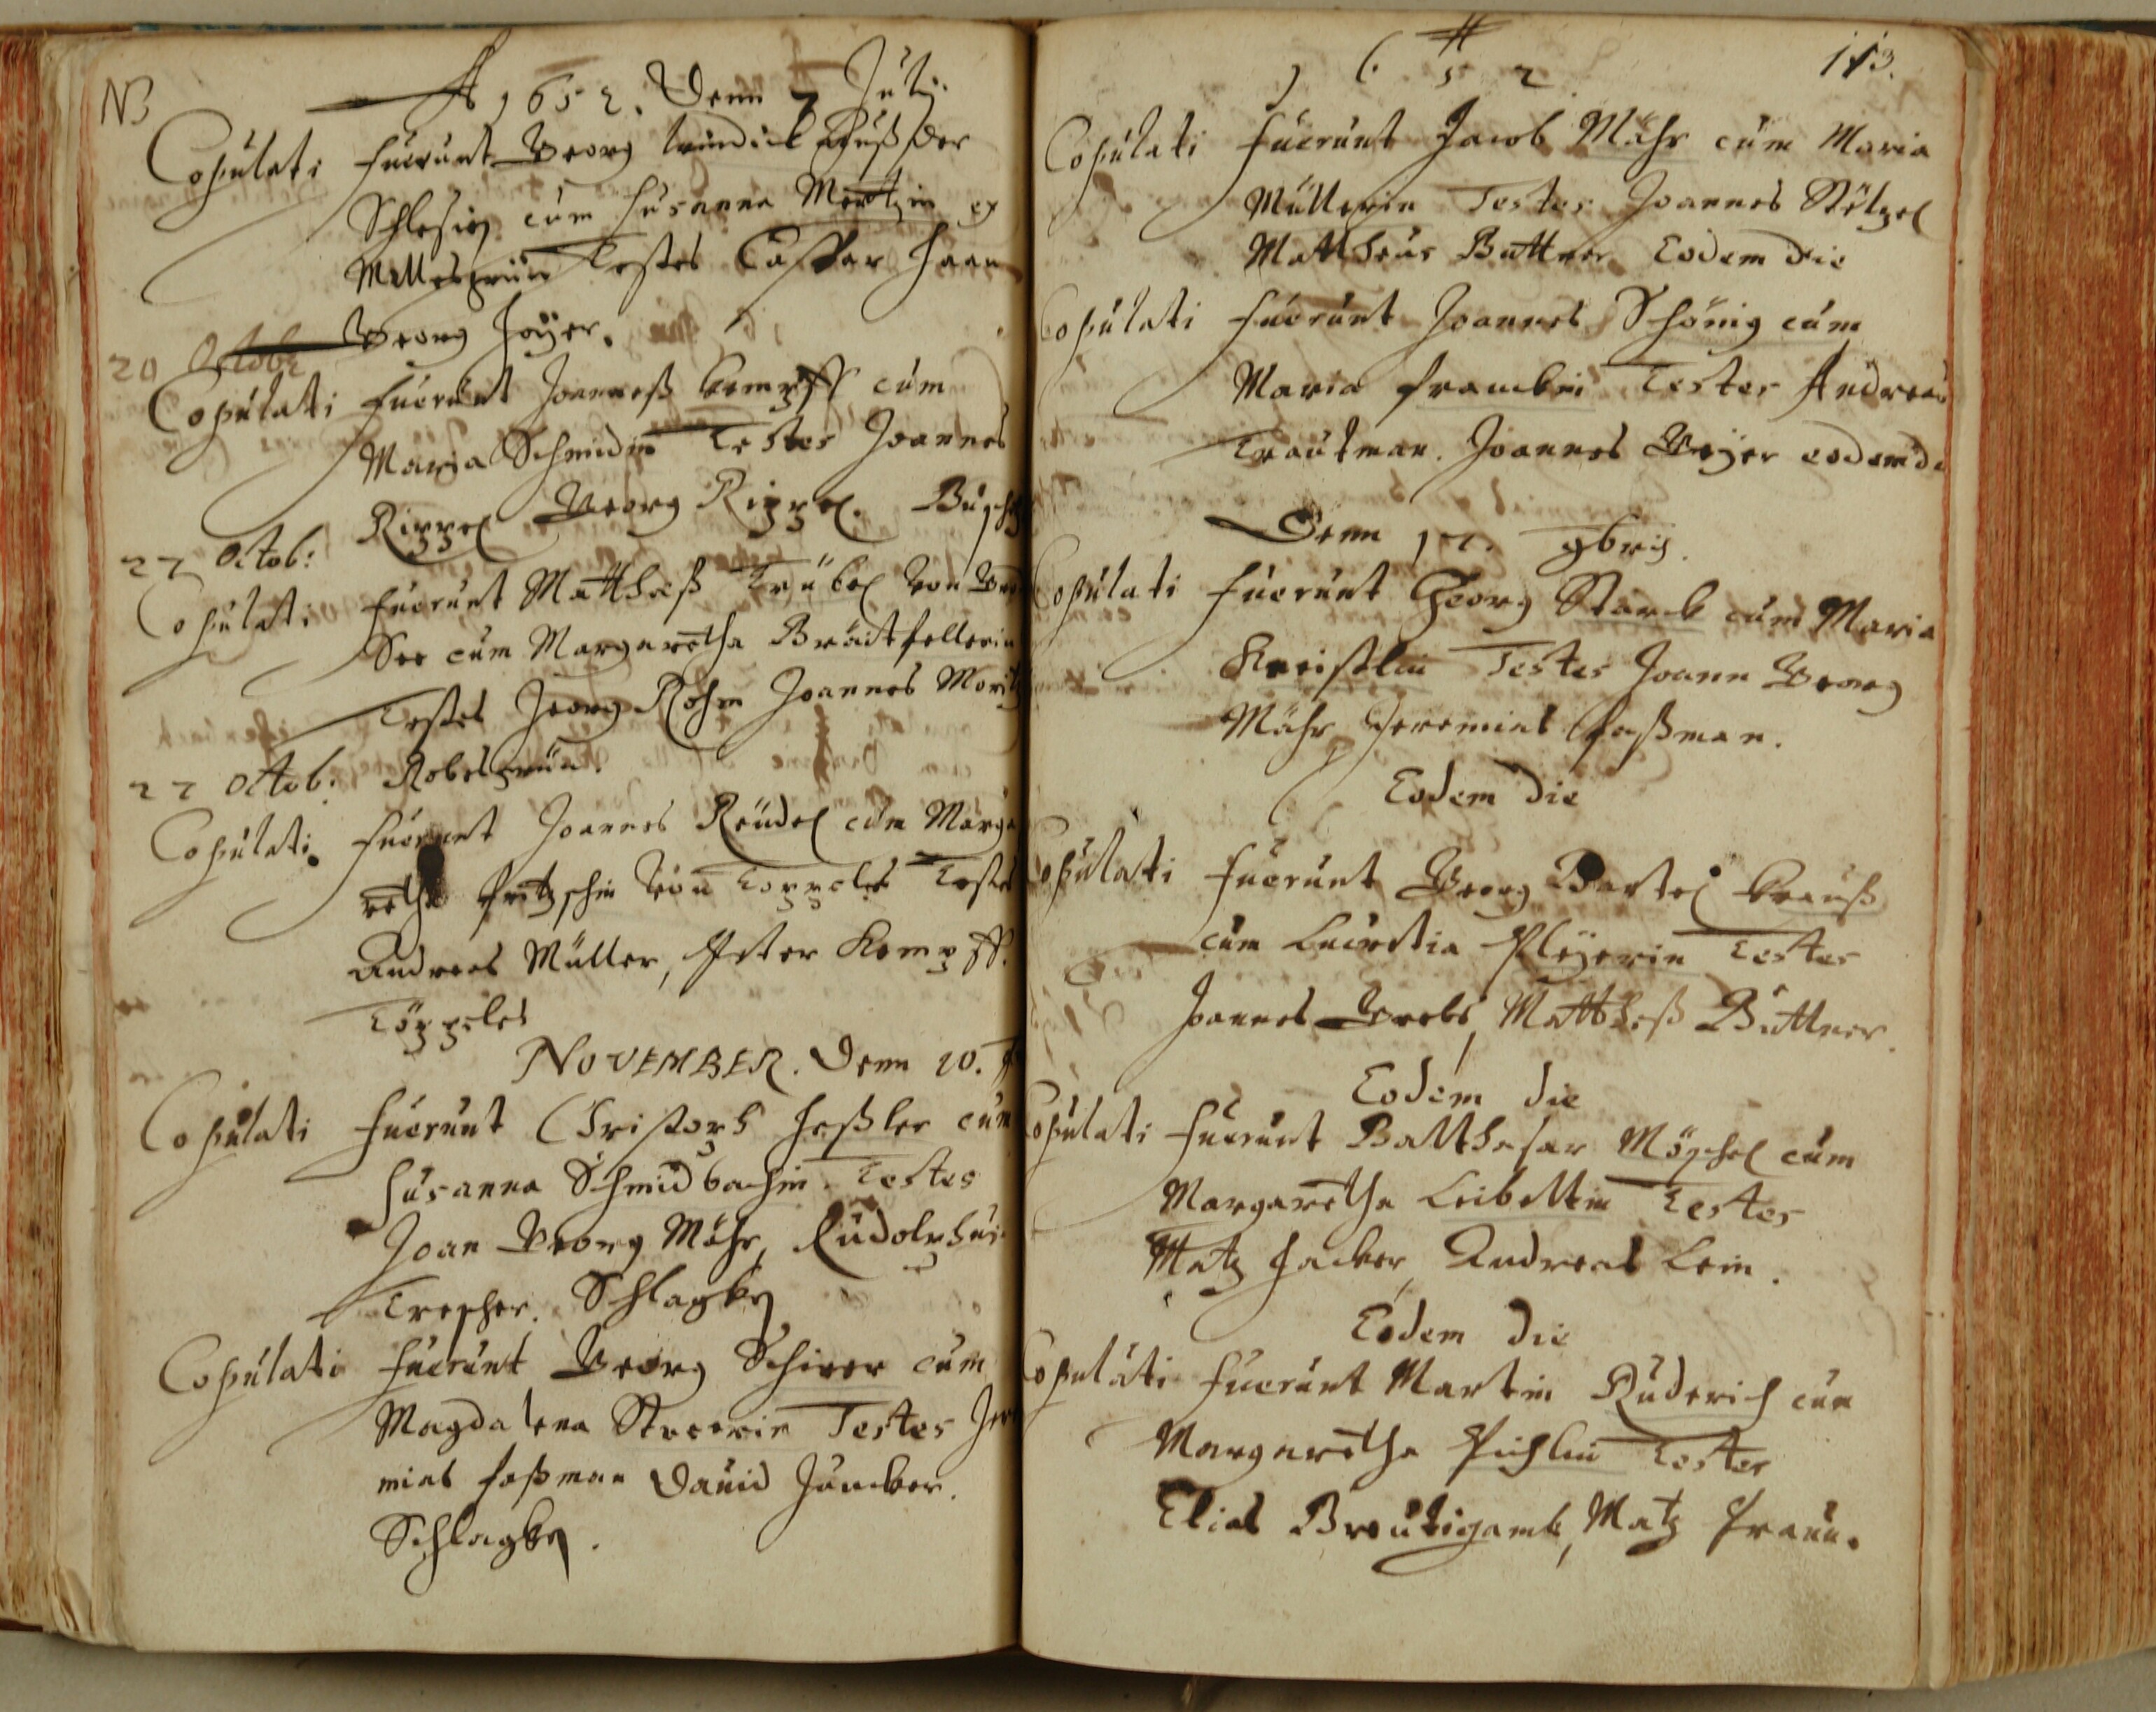 NB
A 1652. Denn 7 Julij.
Copulati fuerunt Georg Auß der
Schlesien cum Susanna Mertzin ex
Testes Caspar Haan
Georg Hoyer.
20 Octobr
Copulati fuerunt Joanneß Kempff cum
Maria Schmidin Testes Joannes
Rippel Georg Rippel.
27 Octob:
Copulati fuerunt Mattheß Trübel von
See cum Margaretha
Testes Georg Rohm Joannes
27 Octob: Robesgrün.
Copulati fuerunt Joannes Reudel cum Marga
retha Fritzschin von Töppeles Testes
Andreas Müller, Peter Kempff.
Töppeles
NOVEMBER. Denn 10.
Copulati fuerunt Christoph Heßler cum
Susanna Schmidbachin. Testes
Joan Georg Mähr, Rudolphus
Trescher. Schlagken
Copulati fuerunt Georg Schirer cum
Magdalena Testes Jere
mias Foßman David Juncker.
Schlagken.
A 113.
1652
Copulati fuerunt Jacob Mähr cum Maria
Müllerin Testes Joannes Stötzel
Mattheus Buttner Eodem die
Copulati fuerunt Joannes Schönig cum
Maria Franckin Testes Andreas
Trautman. Joannes Geyer eodem die
Denn 17. 9bris.
Copulati fuerunt Georg Starck cum Maria
Testes Joann Georg
Mähr Jeremias Foßman.
Eodem die
Copulati fuerunt Georg Bartel Krauß
cum Lucretia Pleyerin Testes
Joannes Mattheß Büttner.
Eodem die
Copulati fuerunt Balthasar Möschel cum
Margaretha Leiboltin Testes
Matz Hacker, Andreas Lein.
Eodem die
Copulati fuerunt Martin Ruderich cum
Margaretha Pichlin Testes
Elias Breutigamb, Matz Fraun.